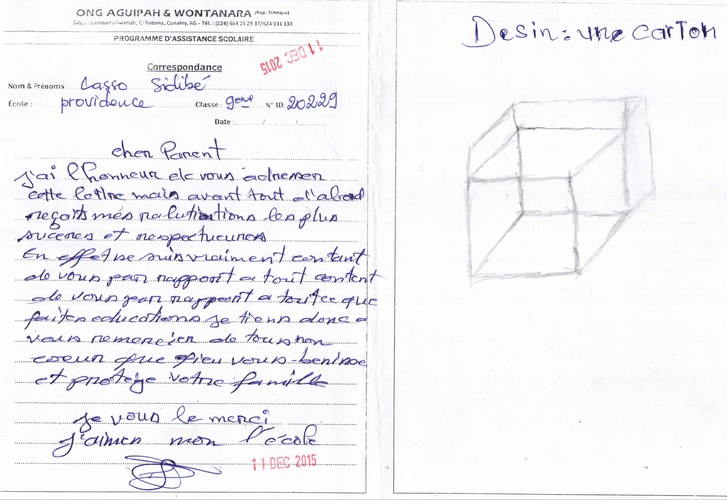 ONG AGUIPAH & WONTANARA (Rép. Tchèque)
PROGRAMME D'ASSISTANCE SCOLAIRE
11 DEC 2015
Correspondance
Nom & Prénoms Casso Sidibé
École: providence Classe: 9eme N° ID 20229
Date: / /
cher Parent
j'ai l'honneur de vous adresser
cette lettre mais avant tout d'abord
reçois més salutations les plus
sinceres et respectueuses
En effet je suis vraiment contant
de vous par rapport a tout content
de vous par rapport a toutce que
faites educations je tiens donc a
vous remercier de tous mon
coeur que Dieu vous benisse
et protège votre famille
je vous le merci
j'aimes mon l'école
11 DEC 2015
Desin: une carton